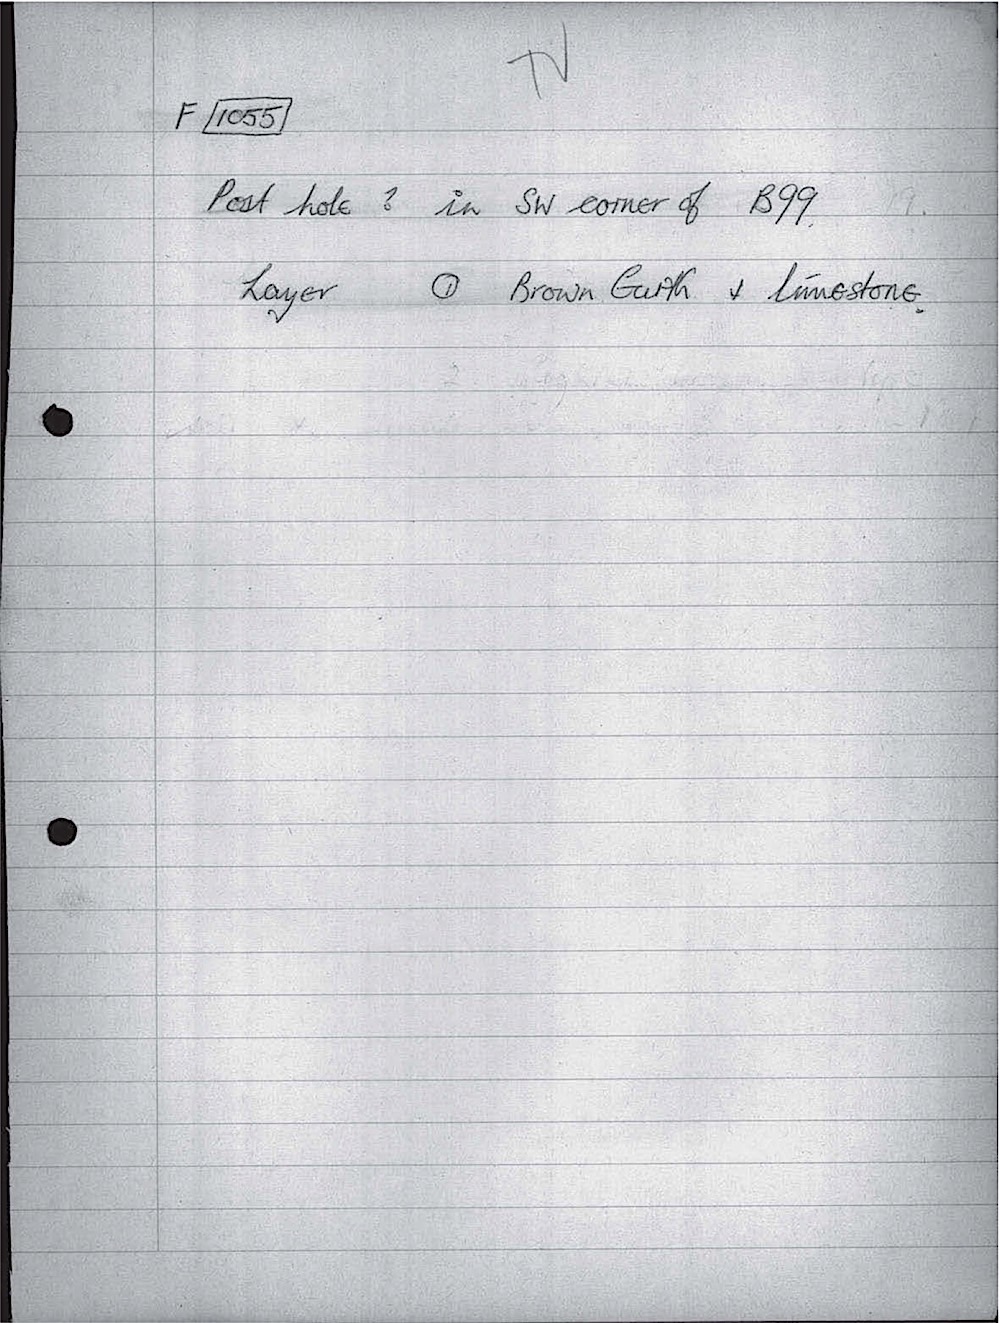 TV
F 1055
Post hole ? in SW corner of B99.
Layer ① Brown Earth & Limestone.